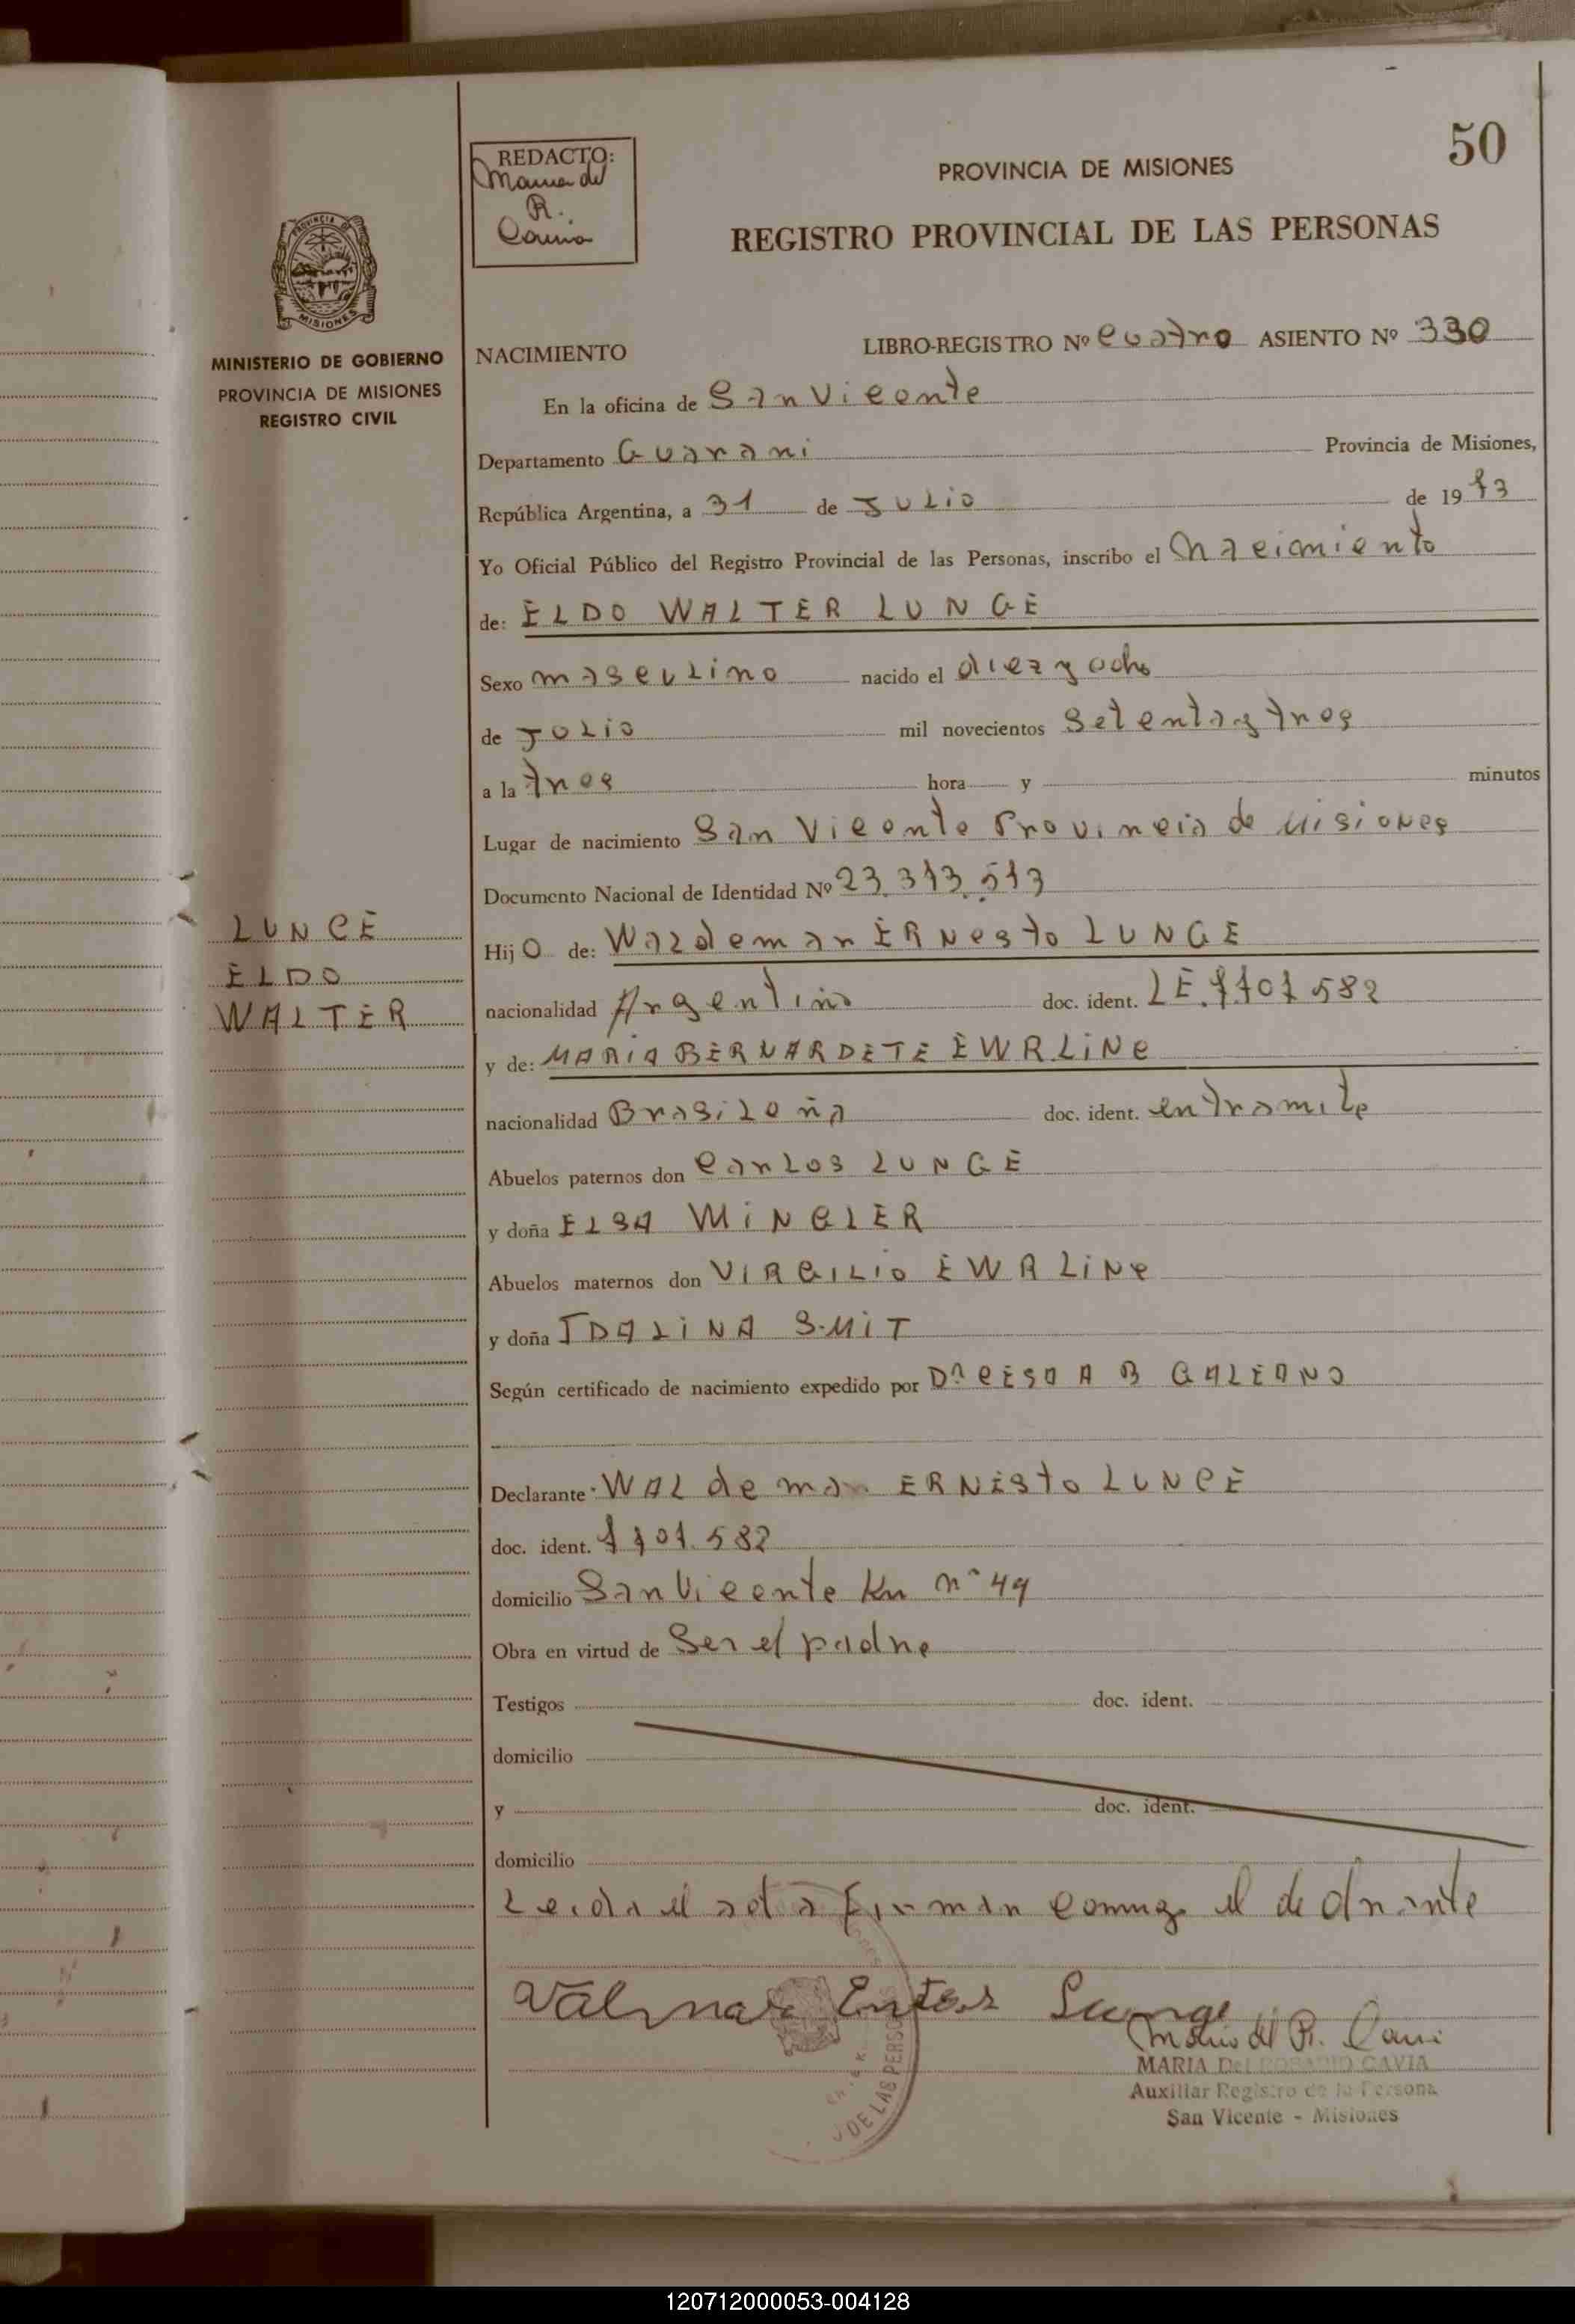 50
REDACTO:
Maria del
R.
Cavia
PROVINCIA DE MISIONES
REGISTRO PROVINCIAL DE LAS PERSONAS
PROVINCIA DE
MISIONES
MINISTERIO DE GOBIERNO
PROVINCIA DE MISIONES
REGISTRO CIVIL
NACIMIENTO LIBRO-REGISTRO Nº cuatro ASIENTO Nº 330
En la oficina de San Vicente
Departamento Guarani Provincia de Misiones,
República Argentina, a 31 de JULio de 1973
Yo Oficial Público del Registro Provincial de las Personas, inscribo el Nacimiento
de: ELDO WALTER LUNGE
Sexo mascuLino nacido el diez y ocho
de JULio mil novecientos Setenta y tres
a la tres hora y minutos
Lugar de nacimiento San Vicente Provincia de Misiones
Documento Nacional de Identidad Nº 23.313.513
LUNGE
ELDO
WALTER
Hij O de: Waldemar ERNesto LUNGE
nacionalidad Argentino doc. ident. LE. 7701582
y de: MARIA BERNARDETE EWRLiNe
nacionalidad BrasiLeña doc. ident. en tramite
Abuelos paternos don CarLos LUNGE
y doña ELSA WiNGLER
Abuelos maternos don VIRGILio EWRLiNe
y doña IDALiNA SMiT
Según certificado de nacimiento expedido por Dr. CESA A B GALEANO
Declarante WALdemar ERNESto LUNGE
doc. ident. 7701.582
domicilio San Vicente Km nº 49
Obra en virtud de Ser el padre
Testigos doc. ident.
domicilio
y doc. ident.
domicilio
Leida el acta firman conmigo el declarante
Lunge
Maria del R. Cavia
MARIA DEL ROSARIO CAVIA
Auxiliar Registro de la Persona
San Vicente - Misiones
DE LAS PERSO
120712000053-004128